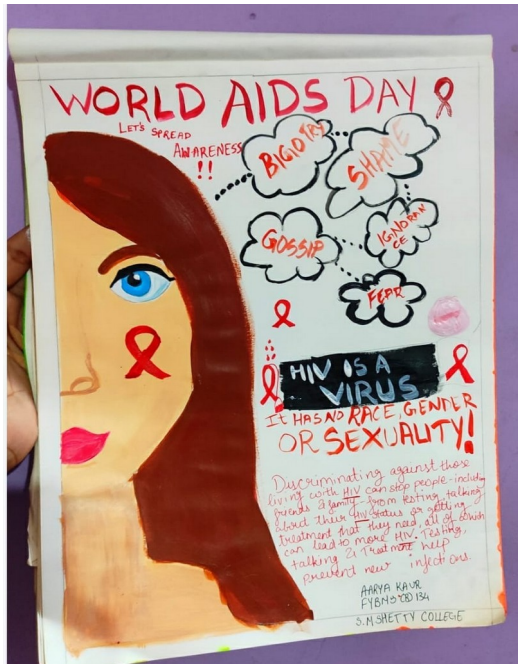 WORLD AIDS DAY
LET'S SPREAD
AWARENESS
!!
BIGIOTRY
SHAME
GOSSIP
IGNORAN
CE
FEAR
HIV IS A
VIRUS
IT HAS NO RACE, GENDER
OR SEXUALITY!
Discriminating against those
living with HIV can stop people - includig
friends & family - from testing, talking
about their HIV status or getting
treatment that they need, all of which
can lead to more HIV. Testing,
talking & Treatment help
prevent new infections.
AARYA KAUR
FYBMS 134
S.M SHETTY COLLEGE